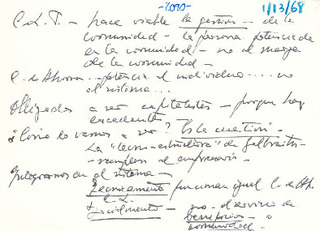 -2020-
1/13/68
C.L.P. - hace viable la gestión - de la
comunidad - la persona potenciada
en la comunidad - no al margen
de la comunidad -
C. de Ahorro - potencia al individuo... no
al sistema...
Obligados a ser capitalistas - porque hay
excedentes
¿Cómo lo vamos a ser? Es la cuestión -
La "tecno-estructura" de Galbraith -
- reemplaza al empresario -
Integrarnos en el sistema -
Técnicamente funcionan igual C. de Ah.
C.L.
Socialmente - no - al servicio de
beneficios - o
comunidad.